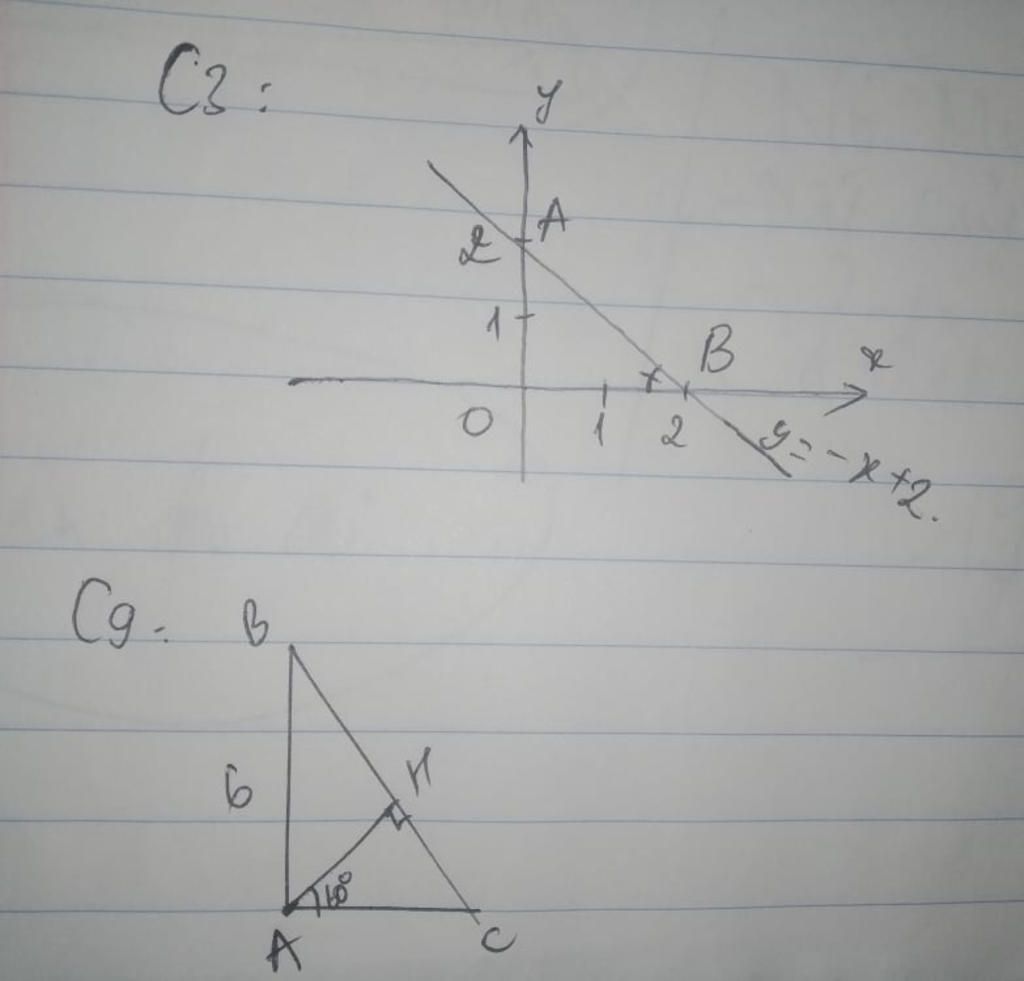 C3:
y
2 A
1
B
x
O 1 2
y = -x+2.
C9:
B
6
H
60°
A C